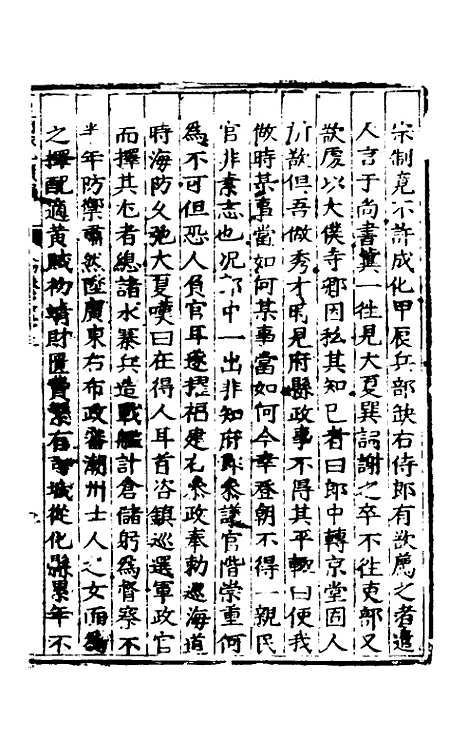 宗制竟不許成化甲辰兵部缺右侍郎有欲薦之者遣
人言于尚書冀一往見大夏巽詞謝之卒不往吏部又
欲處以大僕寺卿因私其知已者曰郎中轉京堂固人
所欲但吾做秀才時見府縣政事不得其平輒曰使我
做時某事當如何某事當如何今幸登朝不得一親民
官非素志也况郎中一出非知府即參議官階崇重何
為不可但恐人負官耳遂擢福建右參政奉勅巡海道
時海防久弛大夏嘆曰在得人耳首咨鎮巡選軍政官
而擇其尤者總諸水寨兵造戰艦計倉儲躬為督察不
半年防禦肅然陞廣東右布政潘潮州士人之女而為
之擇配適黃賊初靖財匱費繁有司城從化縣累年不